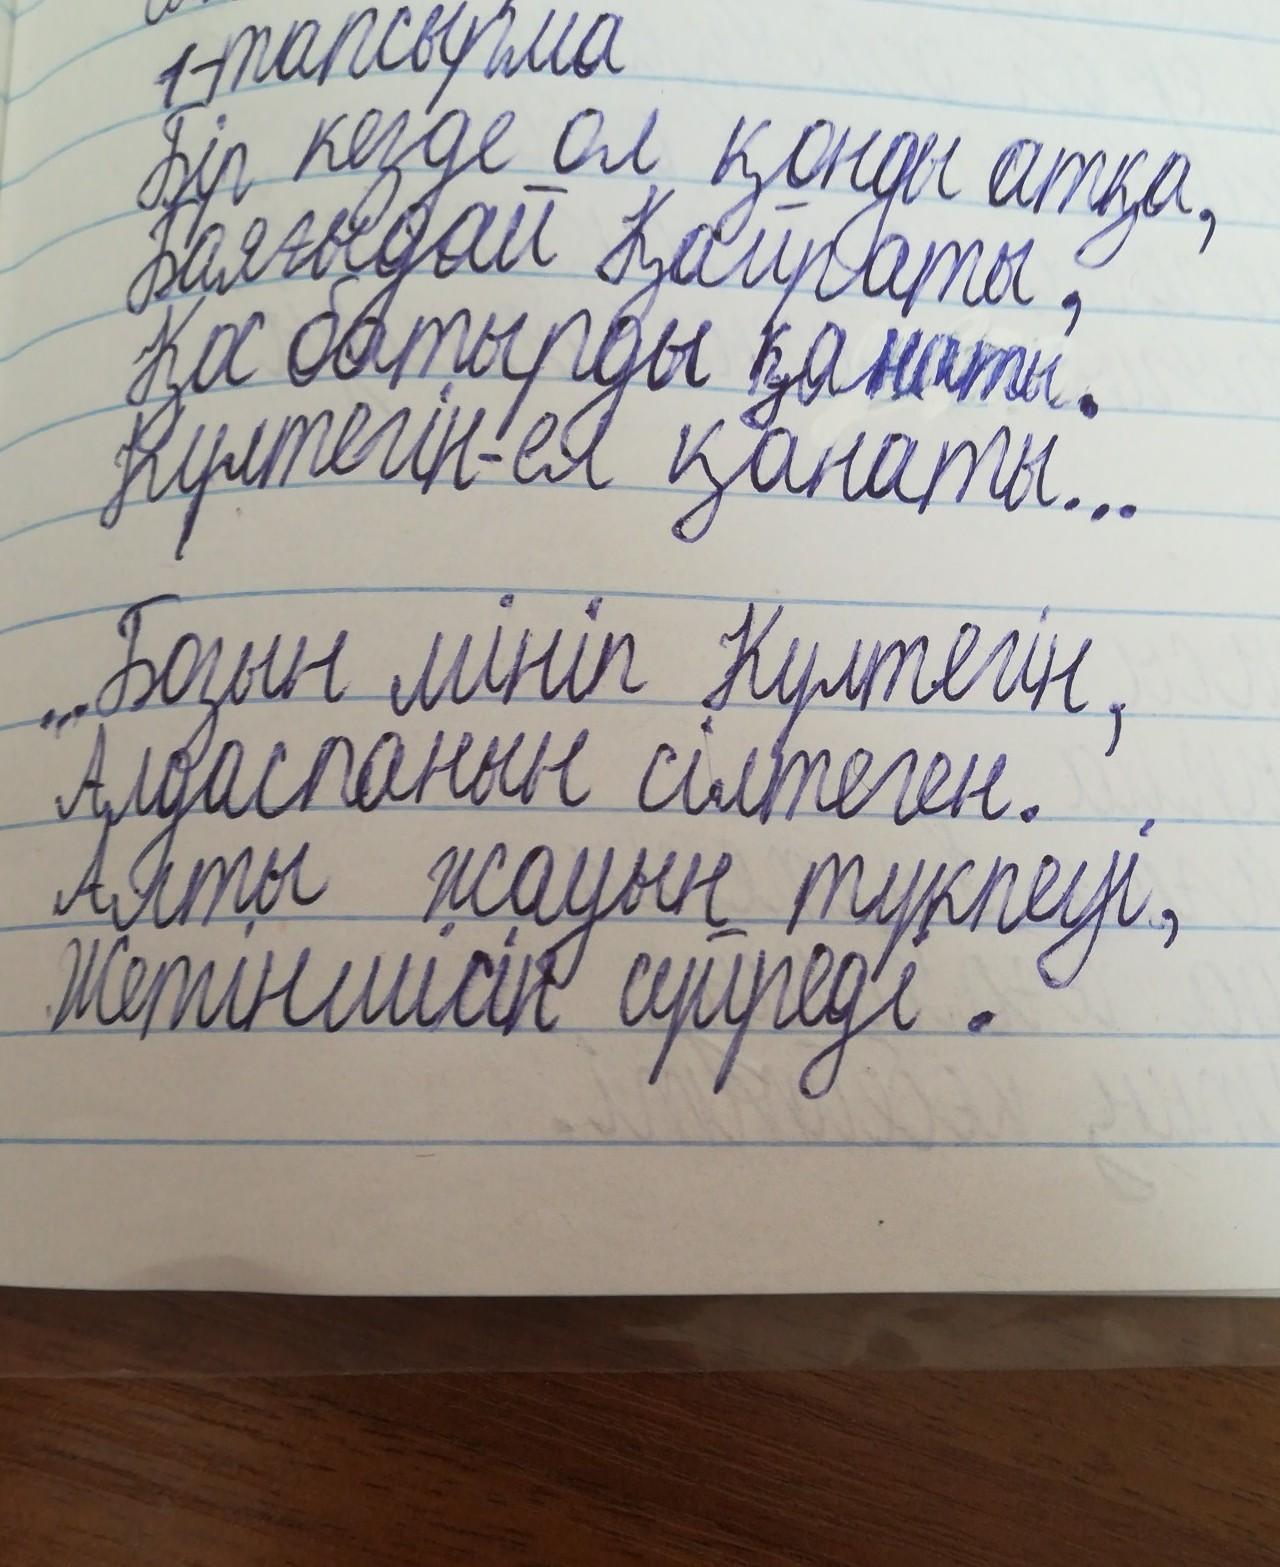 1-тапсырма
Бір кезде ол қонды атқа,
Баяғыдай Қайраты,
Қос батырды қанаты.
Күлтегін-ея қанаты...
...Бозын мініп Күлтегін,
Алдаспанын сілтеген.
Аяпты жауын түкпеуі,
Жетіншісін сүйреді.